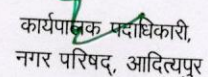 कार्यपालक पदाधिकारी,
नगर परिषद्, आदित्यपुर